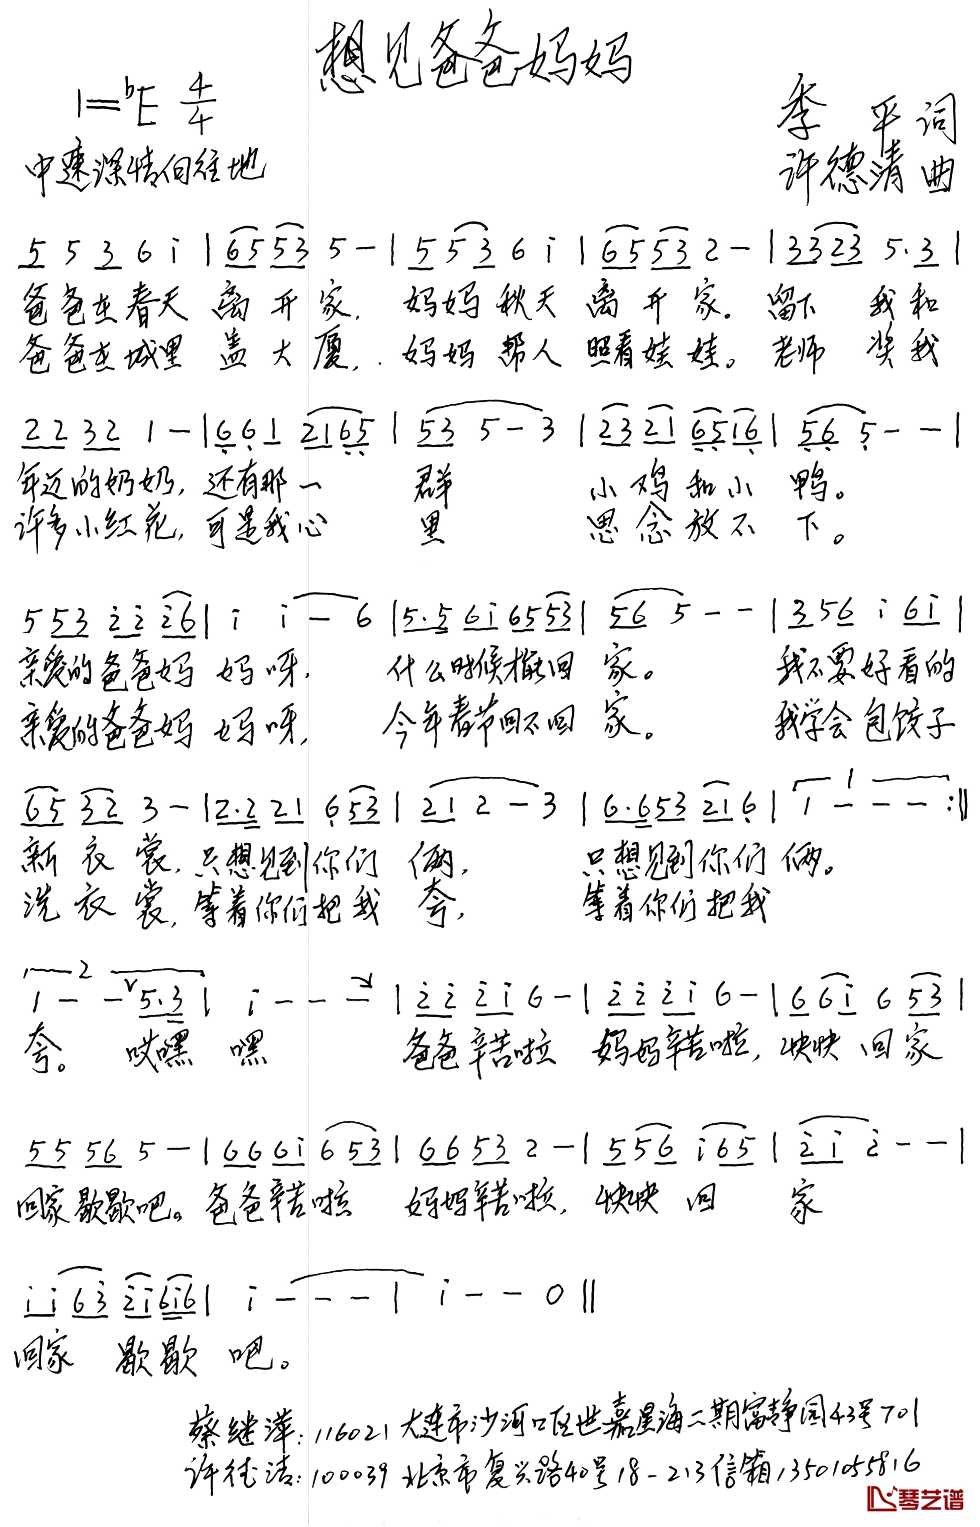 想见爸爸妈妈
1=♭E 4/4
季 平 词
中速深情向往地
许德清 曲
5 5 3 6 i | 6553 5 - | 5 53 6 i | 6553 2 - | 3323 5.3 |
爸爸在春天 离开家, 妈妈秋天 离开家. 留下 我和
爸爸在城里 盖大厦, 妈妈帮人 照看娃娃。老师 奖我
22 32 1 - | 661 2165 | 53 5 - 3 | 2321 6516 | 56 5 - - |
年迈的奶奶, 还有那一 群 小鸡和小 鸭。
许多小红花, 可是我心 里 思念放不 下。
553 ii i6 | i i - 6 | 5.5 6i 6553 | 56 5 - - | 356 i 6i |
亲爱的爸爸妈 妈呀, 什么时候才能回 家。 我不要好看的
亲爱的爸爸妈 妈呀, 今年春节回不回 家。 我学会包饺子
65 32 3 - | 2.2 21 653 | 21 2 - 3 | 6.653 216 | 1 - - - :||
新衣裳, 只想见到你们 俩, 只想见到你们俩。
洗衣裳, 等着你们把我 夸, 等着你们把我
1 - - 5.3 | i - - - | 22 2i 6 - | 22 2i 6 - | 66i 6 53 |
夸。 哎嘿 嘿 爸爸辛苦啦 妈妈辛苦啦, 快快 回家
55 56 5 - | 666i 653 | 66 53 2 - | 556 i65 | 2 i 2 - - |
回家歇歇吧。爸爸辛苦啦 妈妈辛苦啦, 快快 回 家
ii 63 2i 6i6 | i - - - | i - - 0 ||
回家 歇歇 吧。
蔡继萍: 116021 大连市沙河口区世嘉星海二期富静园43号701
许德清: 100039 北京市复兴路40号18-213信箱13501055816
琴艺谱